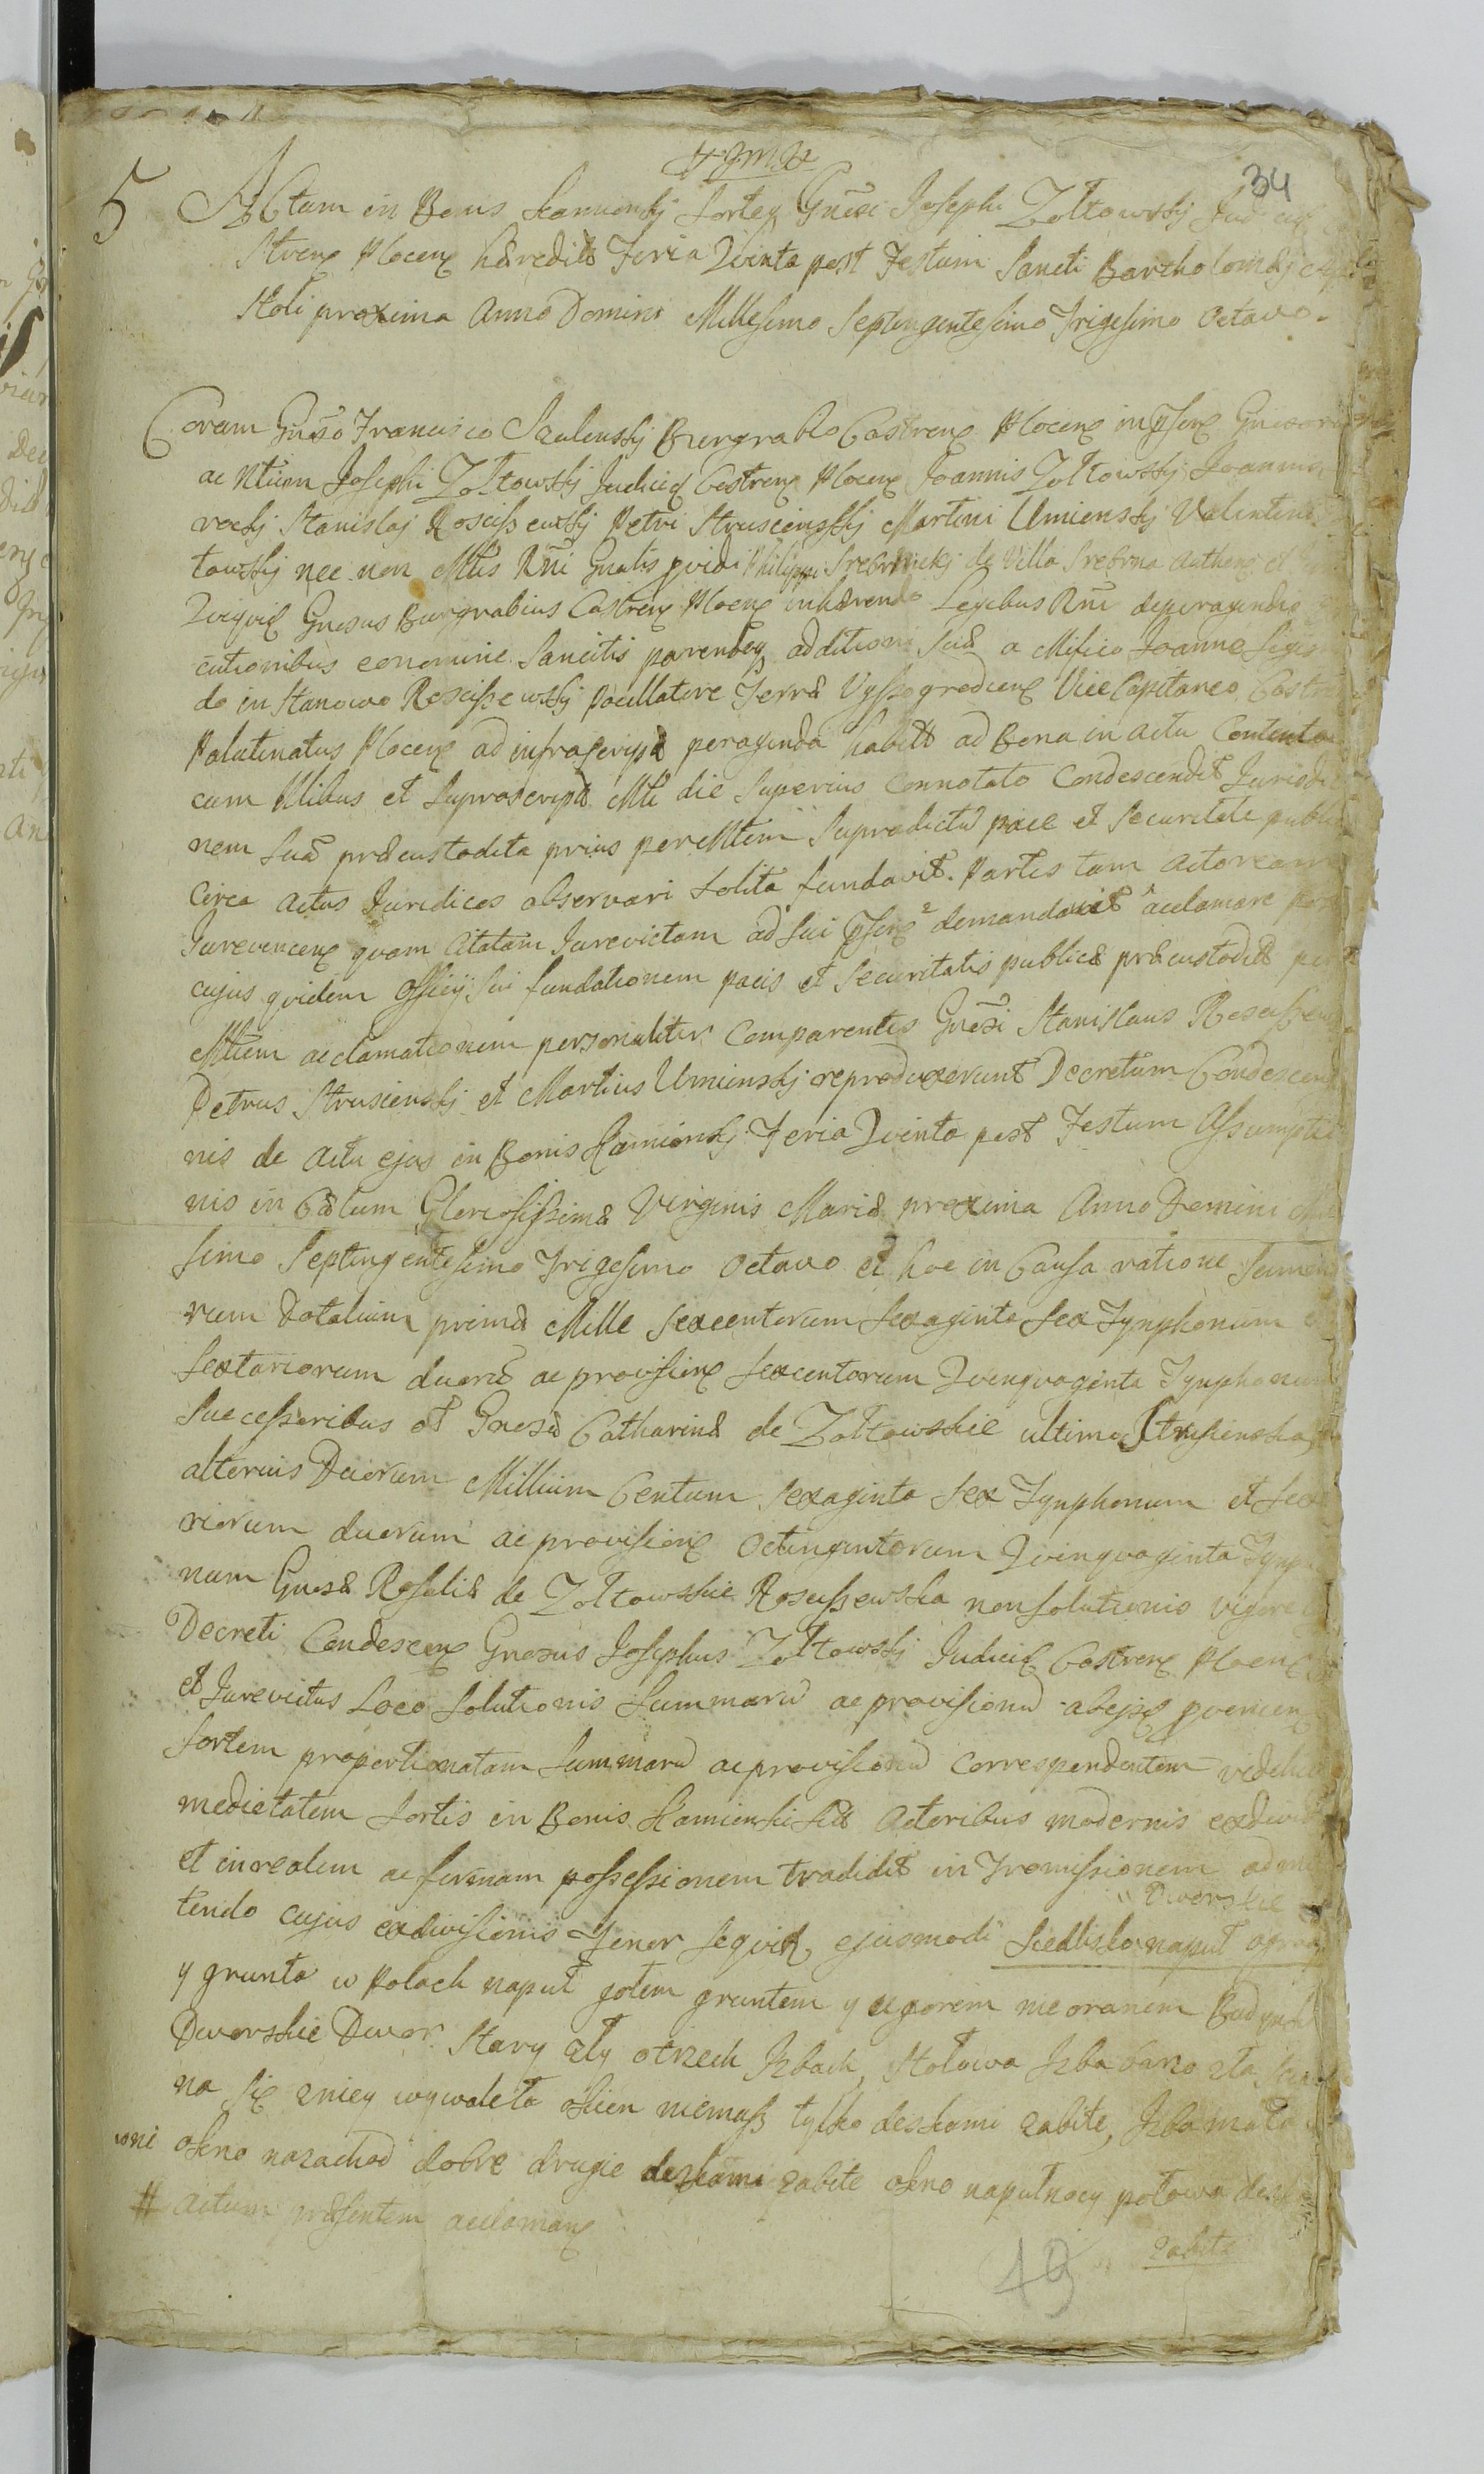 34
5 Actum in Bonis Kamionsky Sorteq Gnesi Josephi Zołtowsky Judicis
Strenq Plocenq hæreditt Feria Quinta post Festum Sancti Bartholomæj
stoli proxima Anno Domini Millesimo Septingentesimo Trigesimo Octavo.
Coram Gnso Francisco Szulensky Burgrabio Castrenq Plocenq in pntq
ac Ntium Josephi Zołtowsky Judiciq Castrenq Plocenq Joannis Zołtowsky Joannis
rocky Stanislaj Rosciszewsky Petri Struscienssky Martini Umiensky Valentini
towsky nec non Mtis Rni Gnalis pvidi Philippi Srebrnicky de Villa Srebrna authenq et
Quiquiq Gnosus Burgrabius Castrenq Plocenq inhærendo Legibus Rni deperagendis
cutionibus eonomine Sancitis parendoq additioni suæ a Mifico Joanne Sigis
do in Stanowo Rosciszewsky Pocillatore Terræ Vyssogrodienq Vice Capitaneo Castre
Palatinatus Plocenq ad infrascripta peragenda habitt ad Bona in actu Contenta
cum Ntibus et Suprascriptt Mti die Superius Connotato Condescendit Jurisdi
nem suã præcustodita prius per Mtem Supradictũ pace et securitate publi
Circa actus Juridicos observari Solita fundavit. Partes tam Actoream
Jurevincenq quam Citatam Jurevictam ad sui pntq demandavit acclamare
cujus quidem Officij sui fundationem pacis et Securitatis publicæ præcustodiã per
Mtem acclamationem personaliter Comparentes Gnesi Stanislaus Rosciszew
Petrus Strusiensky et Martius Umiensky reproduxerunt Decretum Condescens
nis de actu ejus in Bonis Kamionsky Feria Quinta post Festum Assumptio
nis in Cælum Gloriosissimæ Virginis Mariæ proxima Anno Domini Mille
simo Septingentesimo Trigesimo Octavo et hoc in Causa ratione Summa
rum Dotalium primæ Mille Sexcentorum Sexaginta Sex Tynphonum et
Sextariorum duorũ ac provisionq Sexcentorum Quinquaginta Tynphonum
Successoribus ol Gnosæ Catharinæ de Zołtowskie ultimo Strusienska
alterius Duorum Millium Centum Sexaginta Sex Tynphonum et Sexta
riorum duorum ac provisionq Octingentorum Quinquaginta Tynpho
num Gnosæ Rosaliæ de Zołtowskie Rosciszewska non solutionis vigore
Decreti Condescenq Gnosus Josephus Zołtowsky Judiciq Castrenq Plocenq
et Jurevictus Loco Solutionis Summarũ ac provisionũ abejsq pvenienq
Sortem proportionatam Summarũ ac provisionũ Correspondentem videlicet
medietatem Sortis in Bonis Kamionski suæ Actoribus modernis exdivid
et in realem ac firmam possessionem tradidit in Intromissionem admit
Dworskie
tendo cujus exdivisionis Tenor Sequitq ejusmodi Siedlisko naput
y grunta w Polach naput gołem gruntem y ugorem nie oranem Budynki
Dworskie Dwor Stary zły o trzech Jzbach, Stołowa Jzba barzo zła
na się zniey wywaleła okien niemasz tylko deskami zabite, Jzba mała
okno nazachod dobre drugie deskami zabite okno napułnocy połowa desk
# Actum præsentem acclamanq
zabite
49